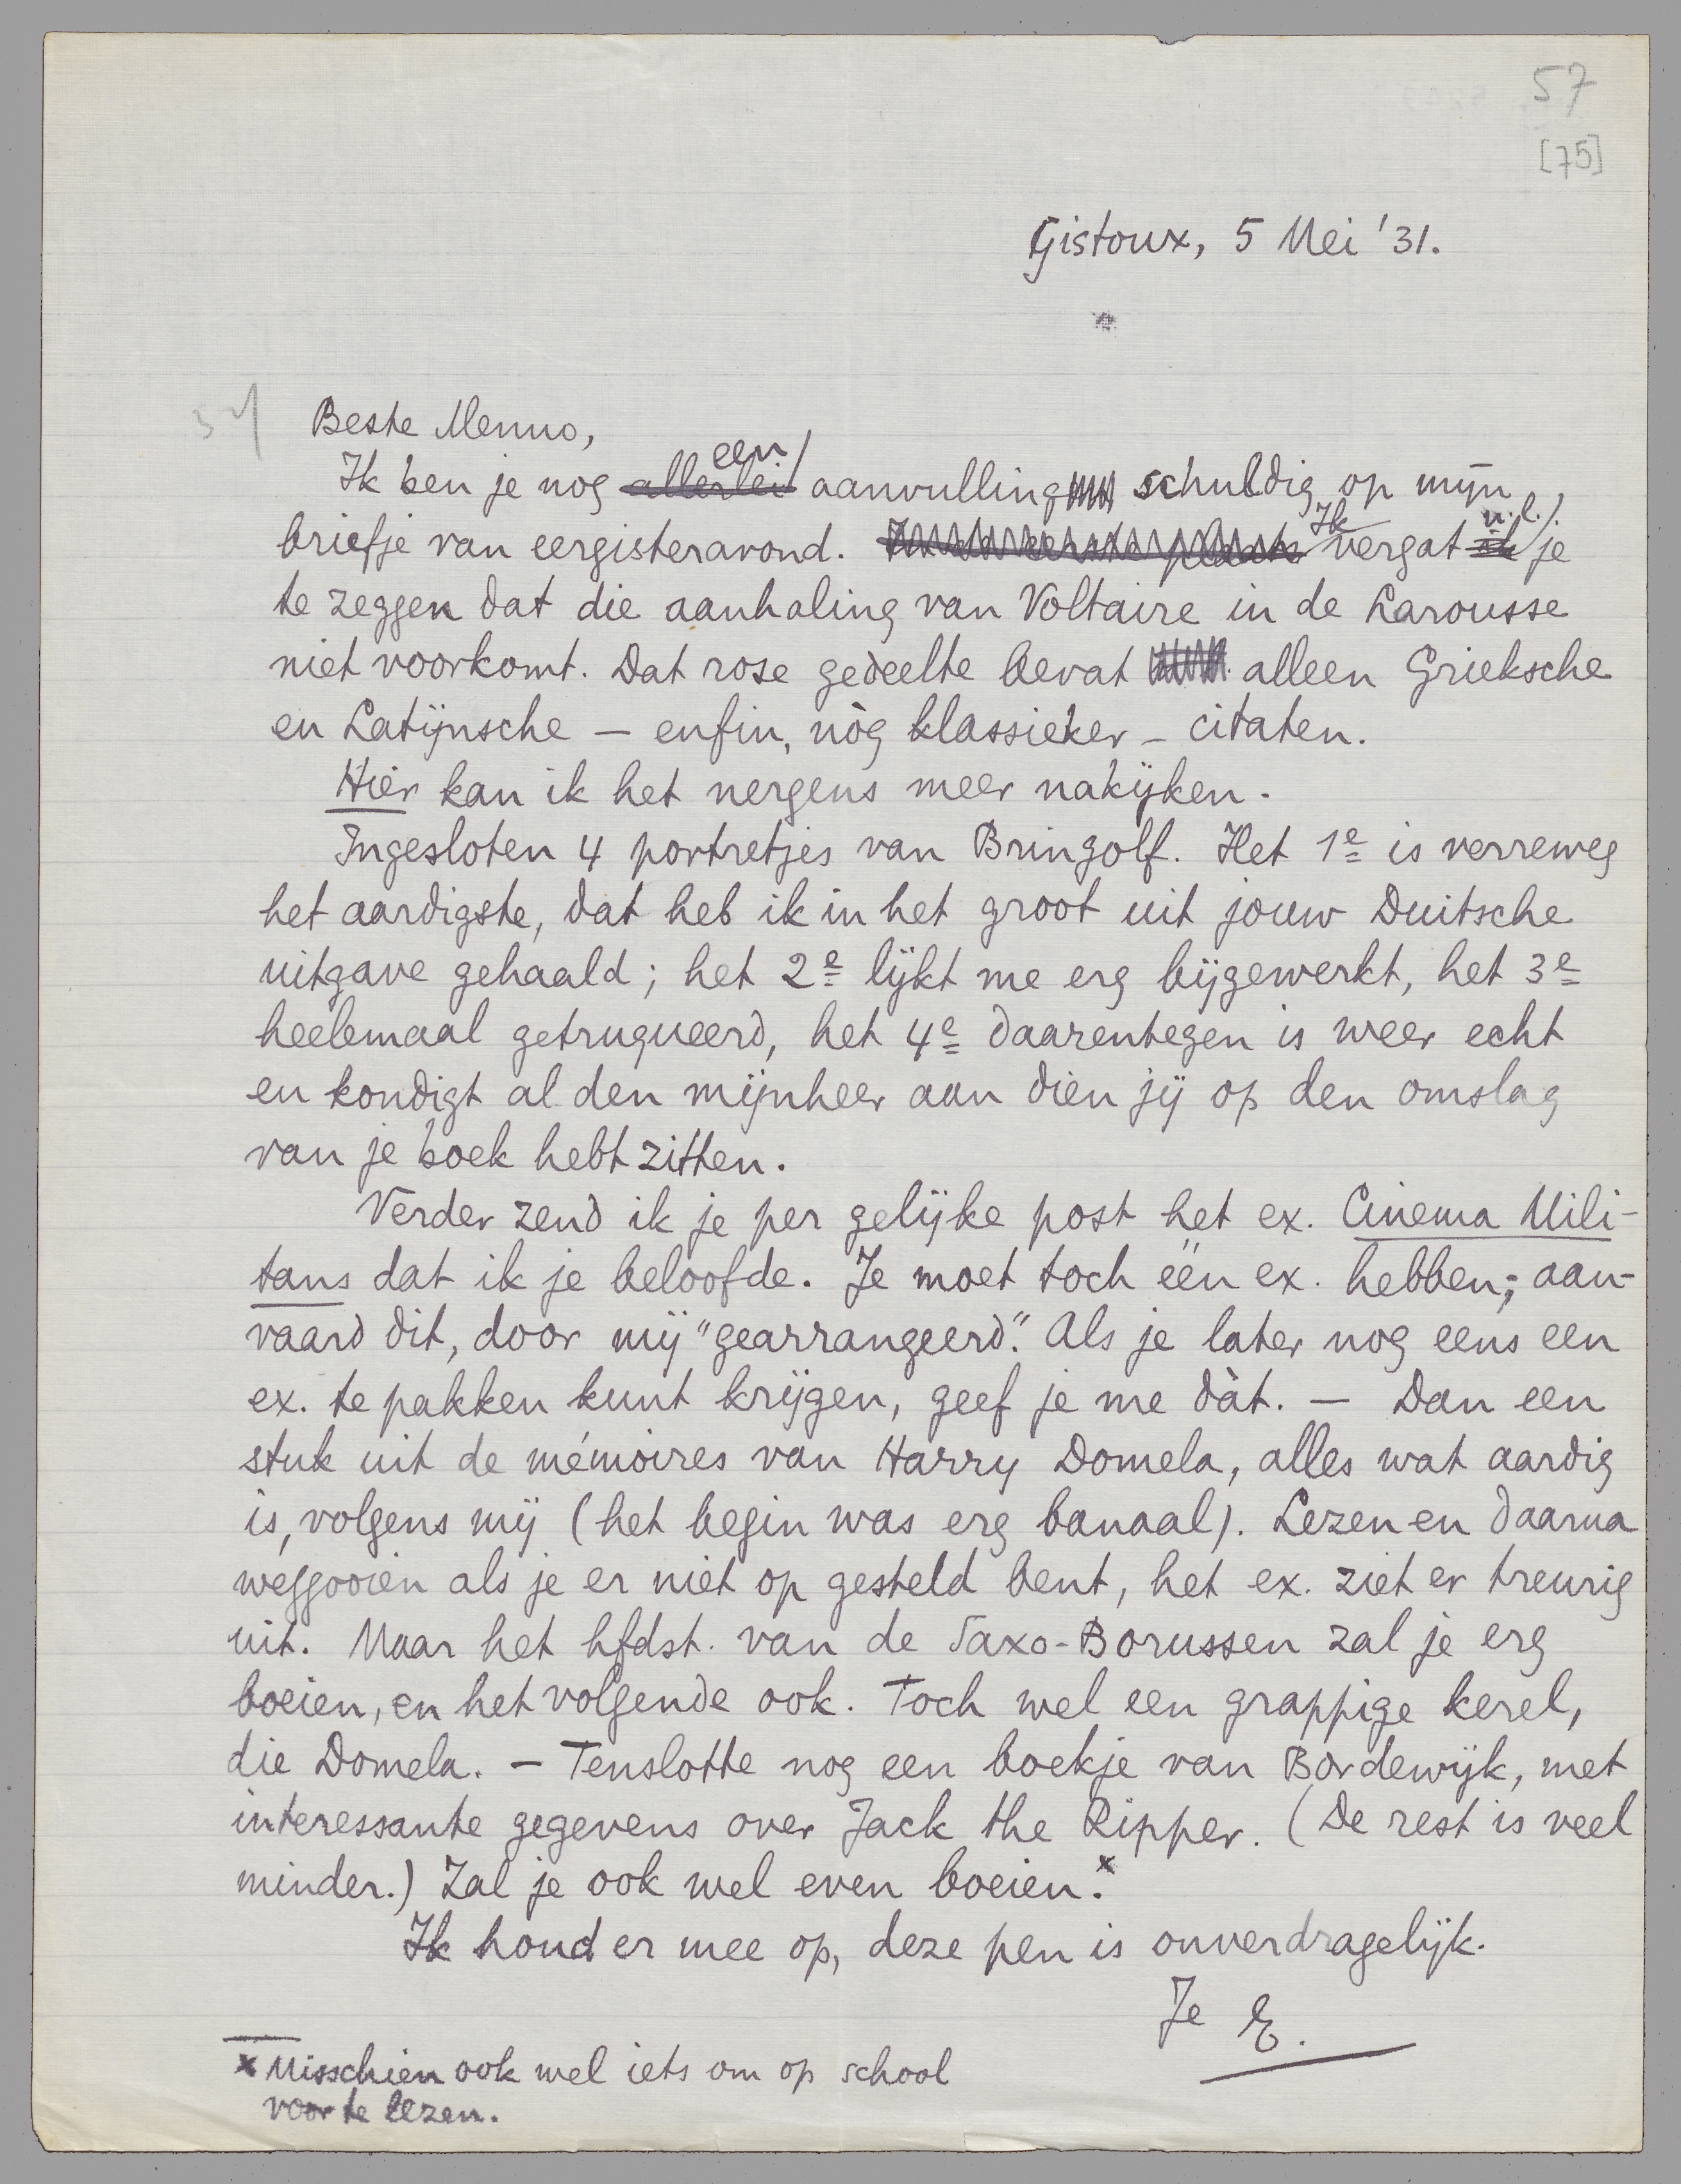 57
[75]
Gistoux, 5 Mei '31.
57
Beste Menno,
Ik ben je nog allerlei een aanvulling schuldig op mijn
briefje van eergisteravond. Ik vergat ik n.l. je
te zeggen dat die aanhaling van Voltaire in de Larousse
niet voorkomt. Dat rose gedeelte bevat alleen Grieksche
en Latijnsche — enfin, nòg klassieker – citaten.
Hier kan ik het nergens meer nakijken.
Ingesloten 4 portretjes van Bringolf. Het 1e is verreweg
het aardigste, dat heb ik in het groot uit jouw Duitsche
uitgave gehaald; het 2e lijkt me erg bijgewerkt, het 3e
heelemaal getruqueerd, het 4e daarentegen is weer echt
en kondigt al den mijnheer aan dien jij op den omslag
van je boek hebt zitten.
Verder zend ik je per gelijke post het ex. Cinema Mili-
tans dat ik je beloofde. Je moet toch één ex. hebben; aan-
vaard dit, door mij "gearrangeerd". Als je later nog eens een
ex. te pakken kunt krijgen, geef je me dàt. — Dan een
stuk uit de mémoires van Harry Domela, alles wat aardig
is, volgens mij (het begin was erg banaal). Lezen en daarna
weggooien als je er niet op gesteld bent, het ex. ziet er treurig
uit. Maar het hfdst. van de Saxo-Borussen zal je erg
boeien, en het volgende ook. Toch wel een grappige kerel,
die Domela. — Tenslotte nog een boekje van Bordewijk, met
interessante gegevens over Jack the Ripper. (De rest is veel
minder.) Zal je ook wel even boeien.x
Ik houd er mee op, deze pen is onverdragelijk.
Je E.
x Misschien ook wel iets om op school
voor te lezen.